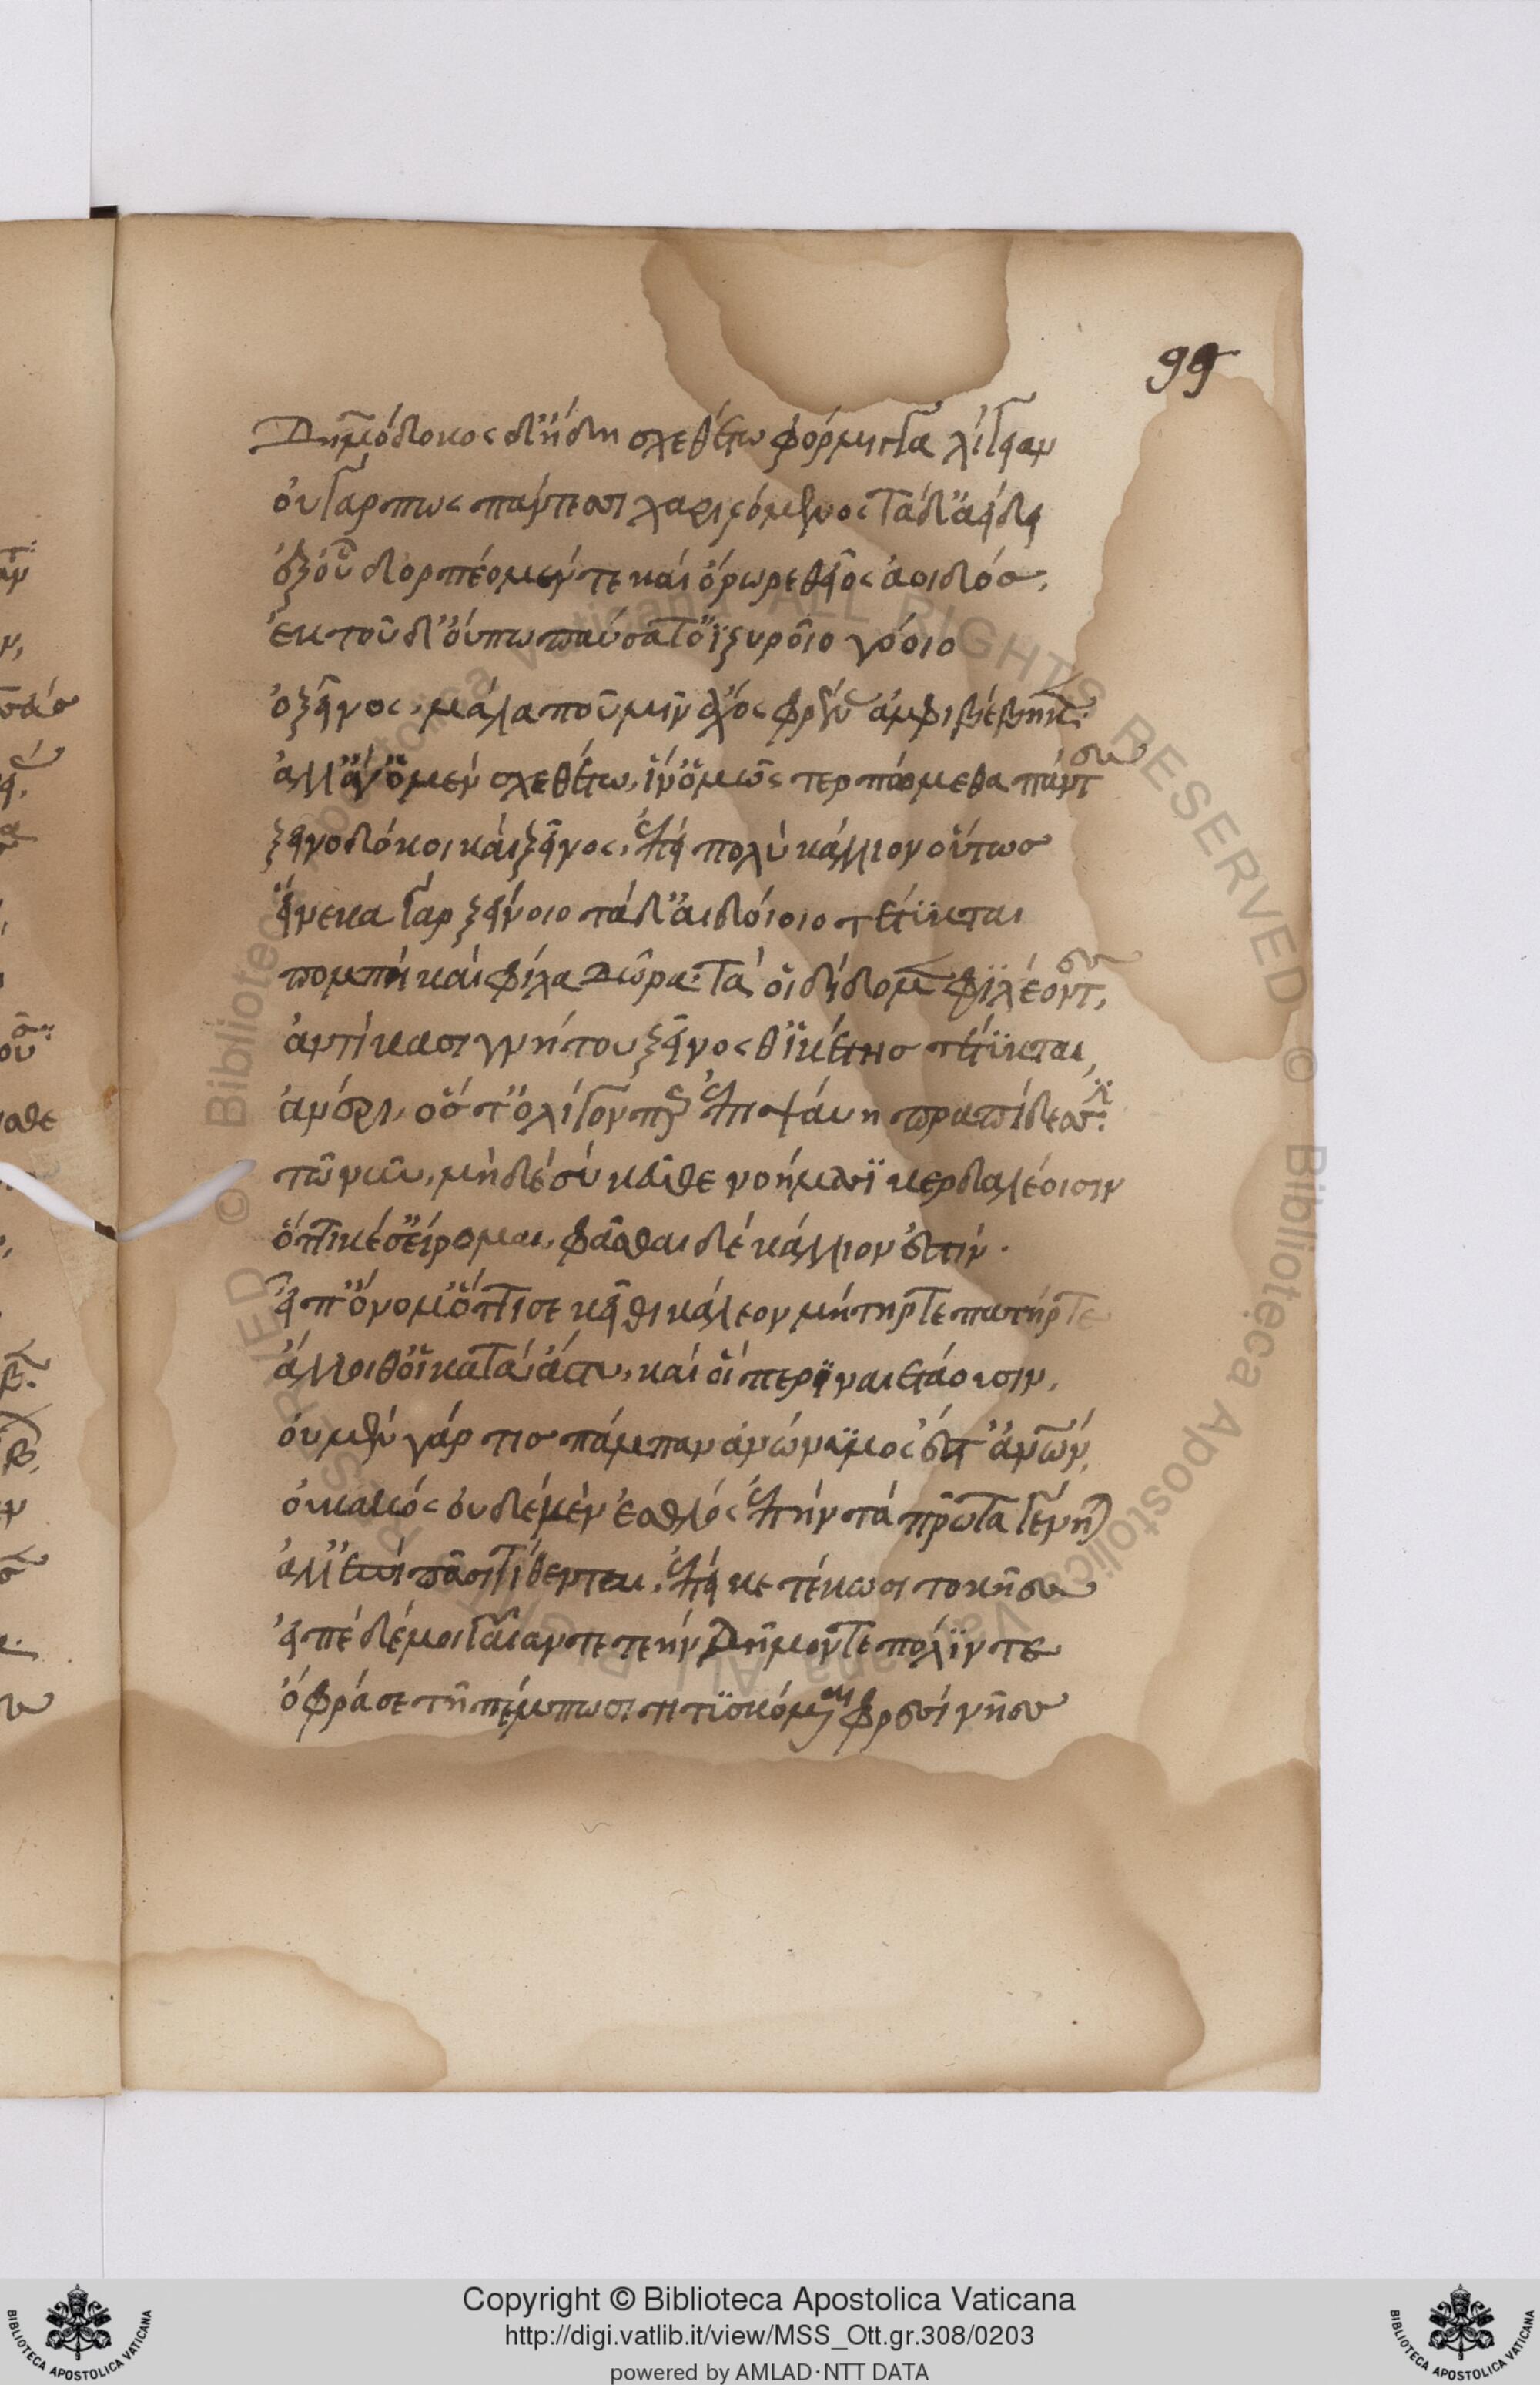 99
Δημόδοκος δ' ἤδη σχεθέτω φόρμιγγα λίγειαν
οὐ γάρ πως πάντεσι χαριζόμενος τάδ' ἀείδει
ἐξ οὗ δορπέομέν τε καὶ ὄρωρε θεῖος ἀοιδός,
ἐκ τοῦ δ' οὔπω παύσατ' ὀϊζυροῖο γόοιο
ὁ ξεῖνος, μάλα πού μιν ἄχος φρένας ἀμφιβέβηκεν.
ἀλλ' ἄγ' ὁ μὲν σχεθέτω, ἵν' ὁμῶς τερπώμεθα πάντες
ξεινοδόκοι καὶ ξεῖνος, ἐπεὶ πολὺ κάλλιον οὕτως
εἵνεκα γὰρ ξείνοιο τάδ' αἰδοίοιο τέτυκται
πομπὴ καὶ φίλα δῶρα τά οἱ δίδομεν φιλέοντες,
ἀντὶ κασιγνήτου ξεῖνός θ' ἱκέτης τέτυκται,
ἀνέρι, ὅς τ' ὀλίγον περ ἐπιψαύῃ πραπίδεσσι.
τῷ νῦν, μηδὲ σὺ κεῦθε νοήμασι κερδαλέοισιν
ὅττί κέ σ' εἴρωμαι, φάσθαι δέ κάλλιον ἐστίν.
εἴπ' ὄνομ' ὅττι σε κεῖθι κάλεον μήτηρ τε πατήρ τε
ἄλλοι θ' οἳ κατὰ ἄστυ, καὶ οἳ περιναιετάουσιν,
οὐ μὲν γάρ τις πάμπαν ἀνώνυμος ἐστ' ἀνθρώπων,
οὐ κακός οὐδὲ μὲν ἐσθλός ἐπὴν τὰ πρῶτα γένηται
ἀλλ' ἐπὶ πᾶσι τίθενται, ἐπεί κε τέκωσι τοκῆες
εἰπὲ δέ μοι γαῖαν τε τεὴν δῆμόν τε πόλιν τε
ὄφρά σε τῇ πέμπωσι τιτυσκόμεναι φρεσὶ νῆες
Copyright © Biblioteca Apostolica Vaticana
http://digi.vatlib.it/view/MSS_Ott.gr.308/0203
powered by AMLAD·NTT DATA